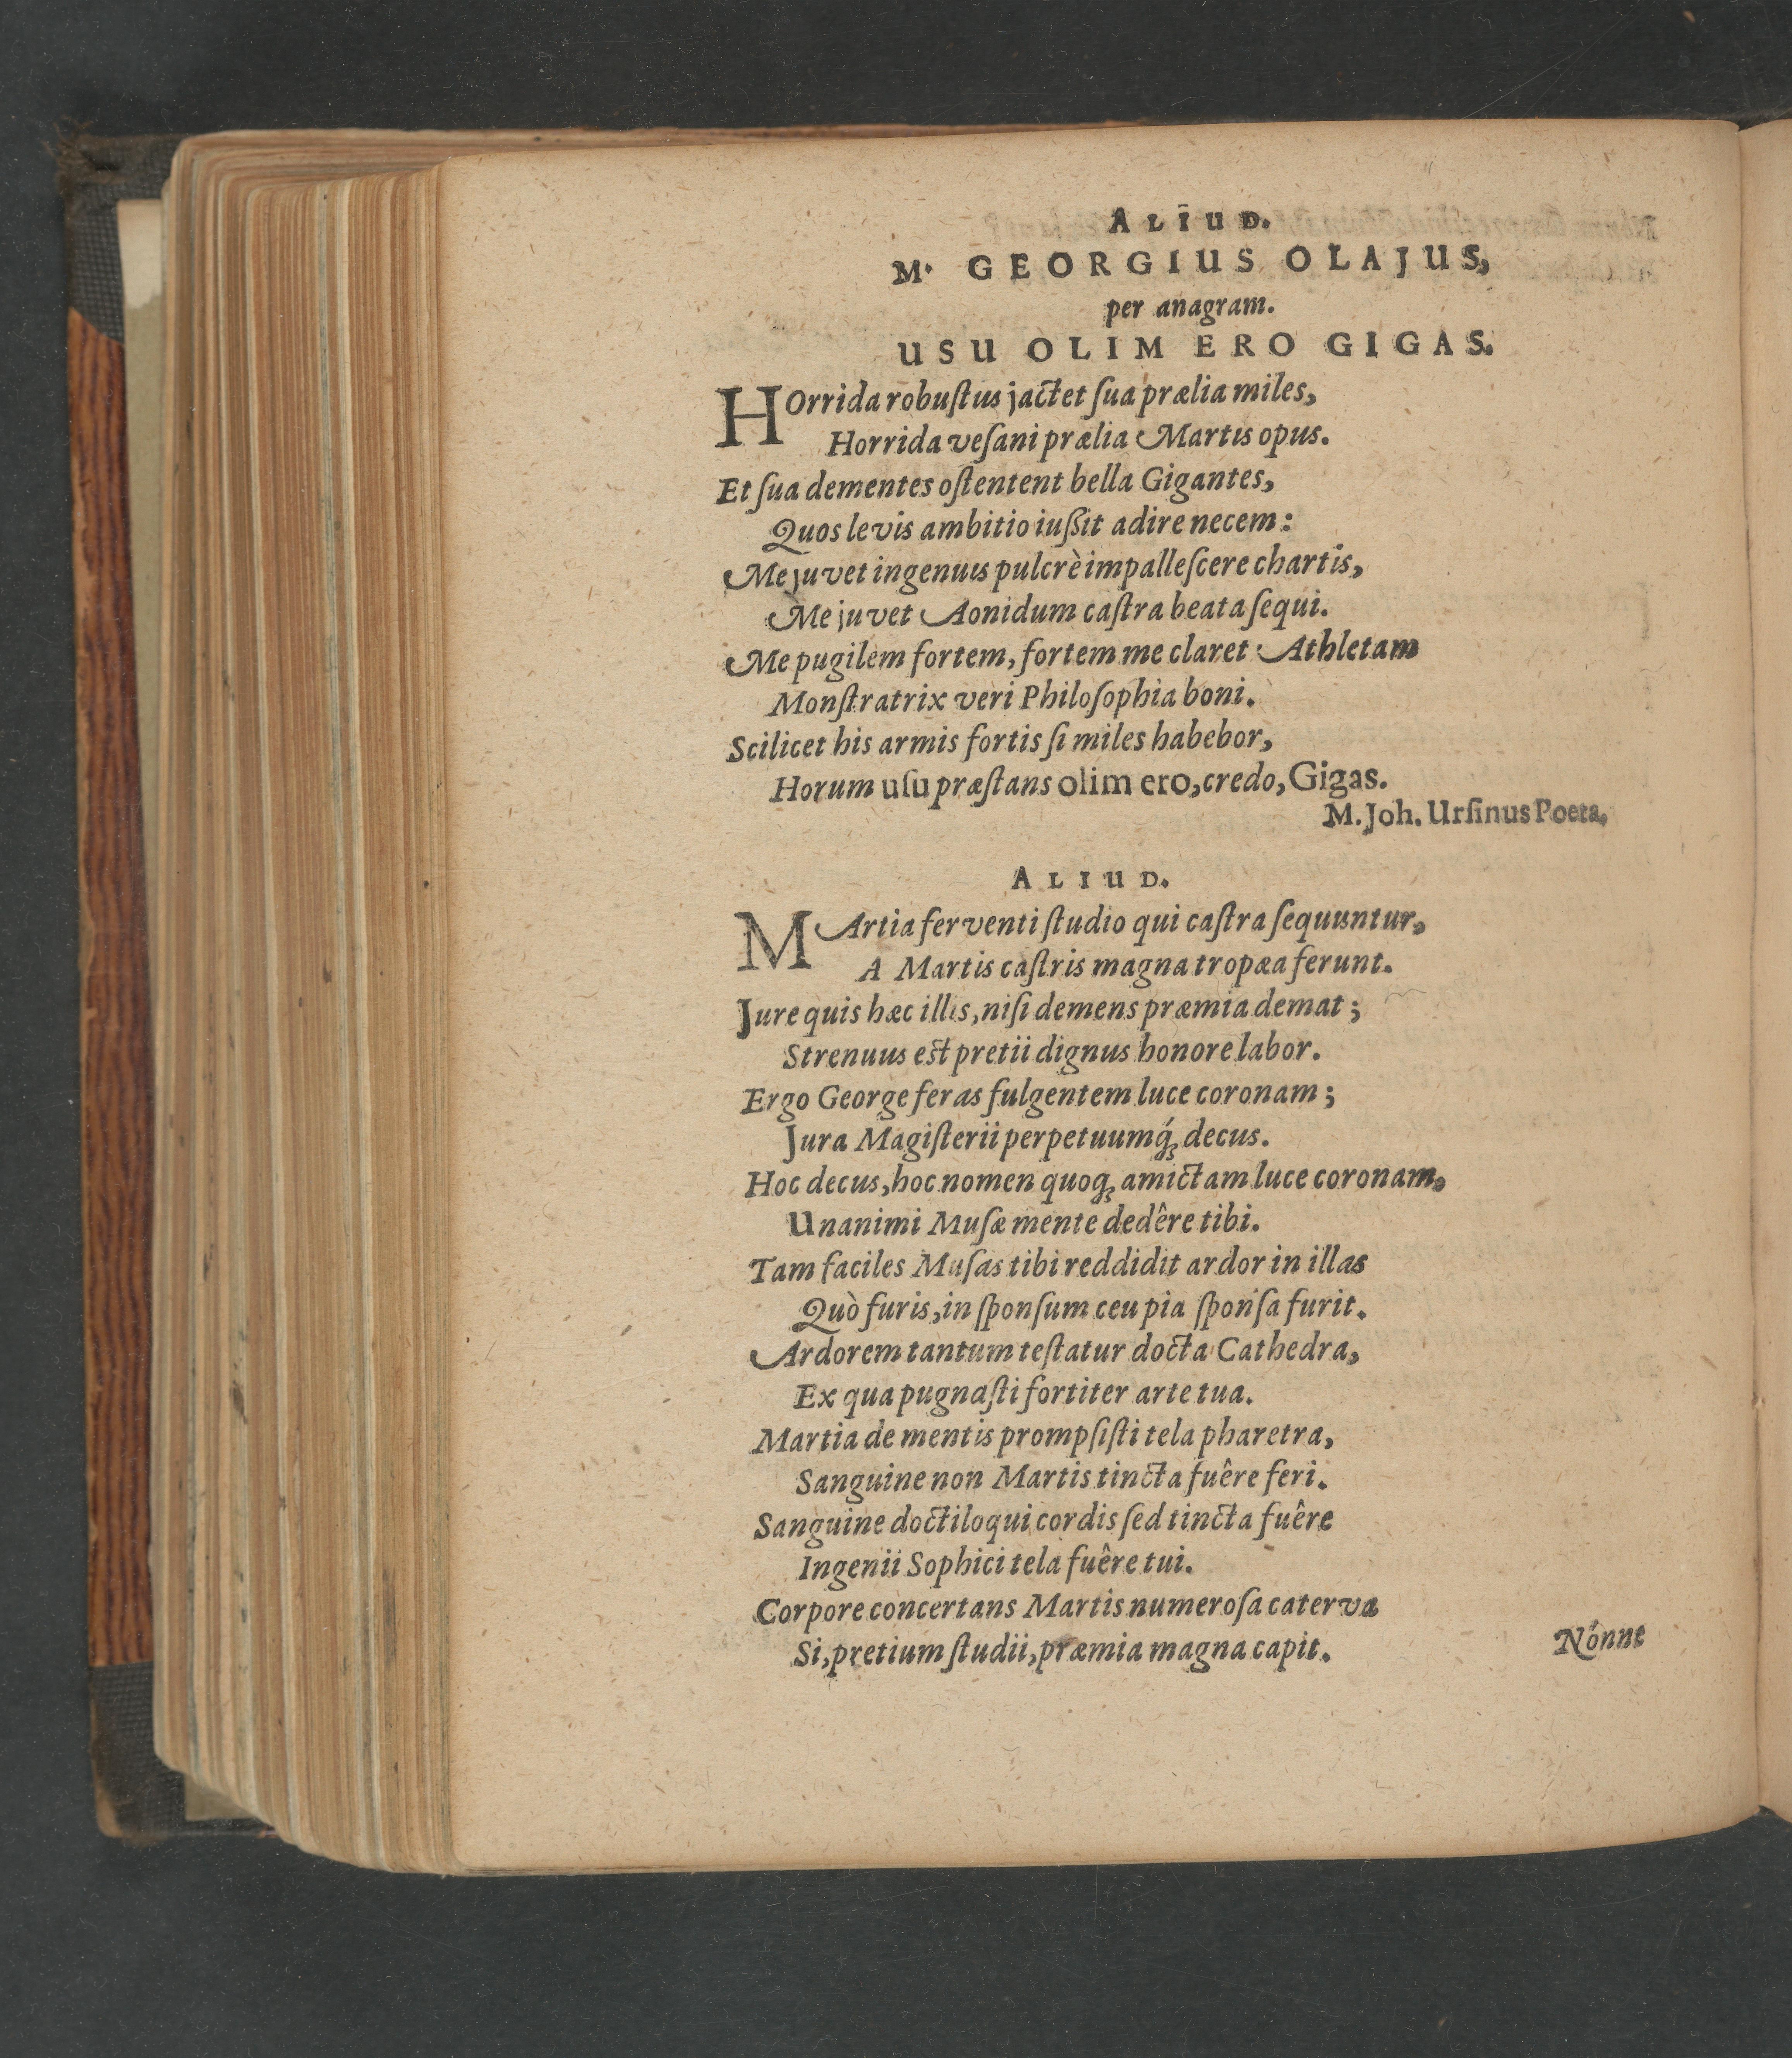 ALIUD.
M. GEORGIUS OLAJUS,
per anagram.
USU OLIM ERO GIGAS.
HOrrida robuſtus jactet ſua prælia miles,
Horrida veſani prælia Martis opus.
Et ſua dementes oſtentent bella Gigantes,
Quos levis ambitio iuſſit adire necem:
Me juvet ingenuis pulcrè impalleſcere chartis,
Me juvet Aonidum caſtra beata ſequi.
Me pugilem fortem, fortem me claret Athletam
Monſtratrix veri Philoſophia boni.
Scilicet his armis fortis ſi miles habebor,
Horum uſu præſtans olim ero, credo, Gigas.
M. Joh. Urſinus Poeta.
ALIUD.
MArtia ferventi ſtudio qui caſtra ſequuntur,
A Martis caſtris magna tropæa ferunt.
Jure quis hæc illis, niſi demens præmia demat;
Strenuus est pretii dignus honore labor.
Ergo George feras fulgentem luce coronam;
Jura Magiſterii perpetuumq́ꝫ decus.
Hoc decus, hoc nomen quoqꝫ amictam luce coronam,
Unanimi Muſæ mente dedêre tibi.
Tam faciles Muſas tibi reddidit ardor in illas
Quò furis, in ſponſum ceu pia ſponſa furit.
Ardorem tantum teſtatur docta Cathedra,
Ex qua pugnaſti fortiter arte tua.
Martia de mentis prompſiſti tela pharetra,
Sanguine non Martis tincta fuêre feri.
Sanguine doctiloqui cordis ſed tincta fuêre
Ingenii Sophici tela fuêre tui.
Corpore concertans Martis numeroſa caterva
Si, pretium ſtudii, præmia magna capit.
Nónne